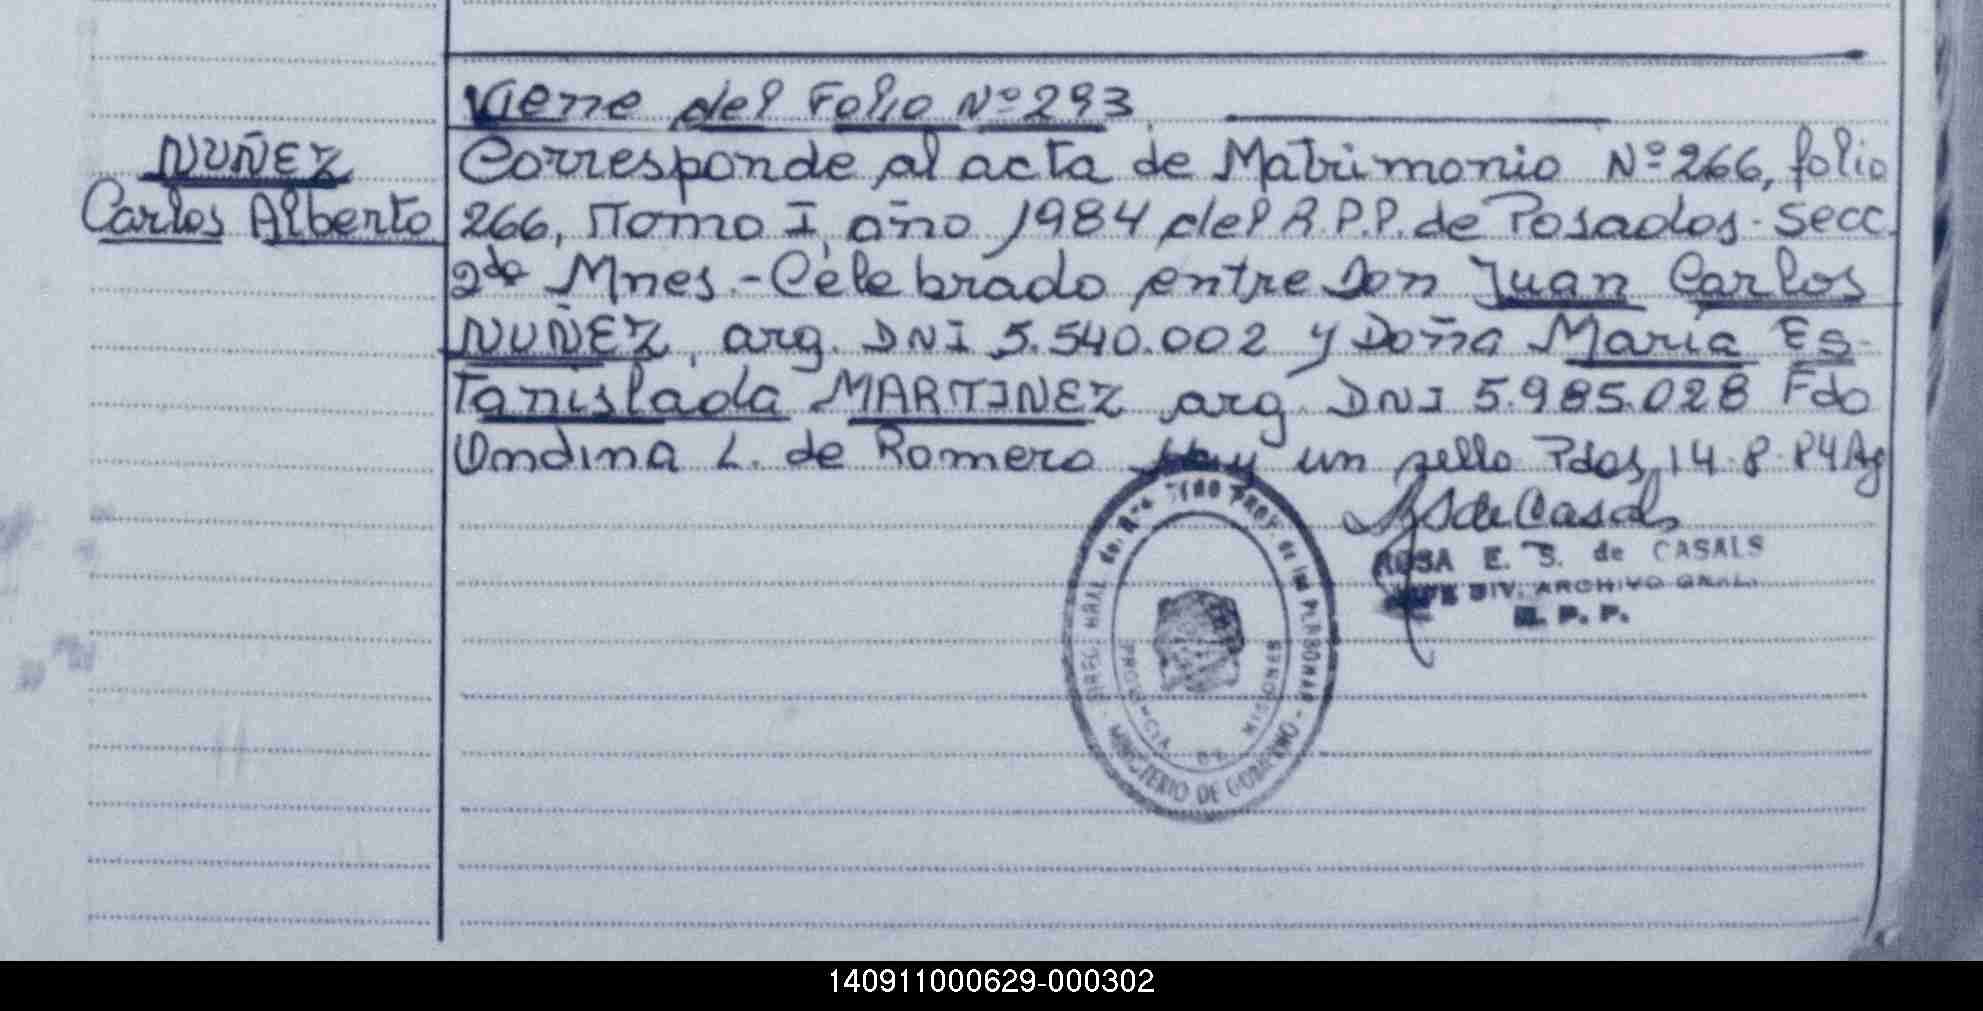 Viene del Folio Nº 293
NUÑEZ
Carlos Alberto
Corresponde al acta de Matrimonio Nº 266, folio
266, Tomo I, año 1984 del R.P.P. de Posadas - Secc.
2da Mnes - Celebrado entre Don Juan Carlos
NUÑEZ, arg. DNI 5.540.002 y Doña María Es-
tanislada MARTINEZ arg. DNI 5.985.028 Fdo
Ondina L. de Romero Hay un sello Pdas, 14.8.84
de Casals
ROSA E. S. de CASALS
JEFE DIV. ARCHIVO GRAL.
R. P. P.
PROV. de las PERSONAS
MINISTERIO DE GOBIERNO
PROVINCIA DE MISIONES
140911000629-000302